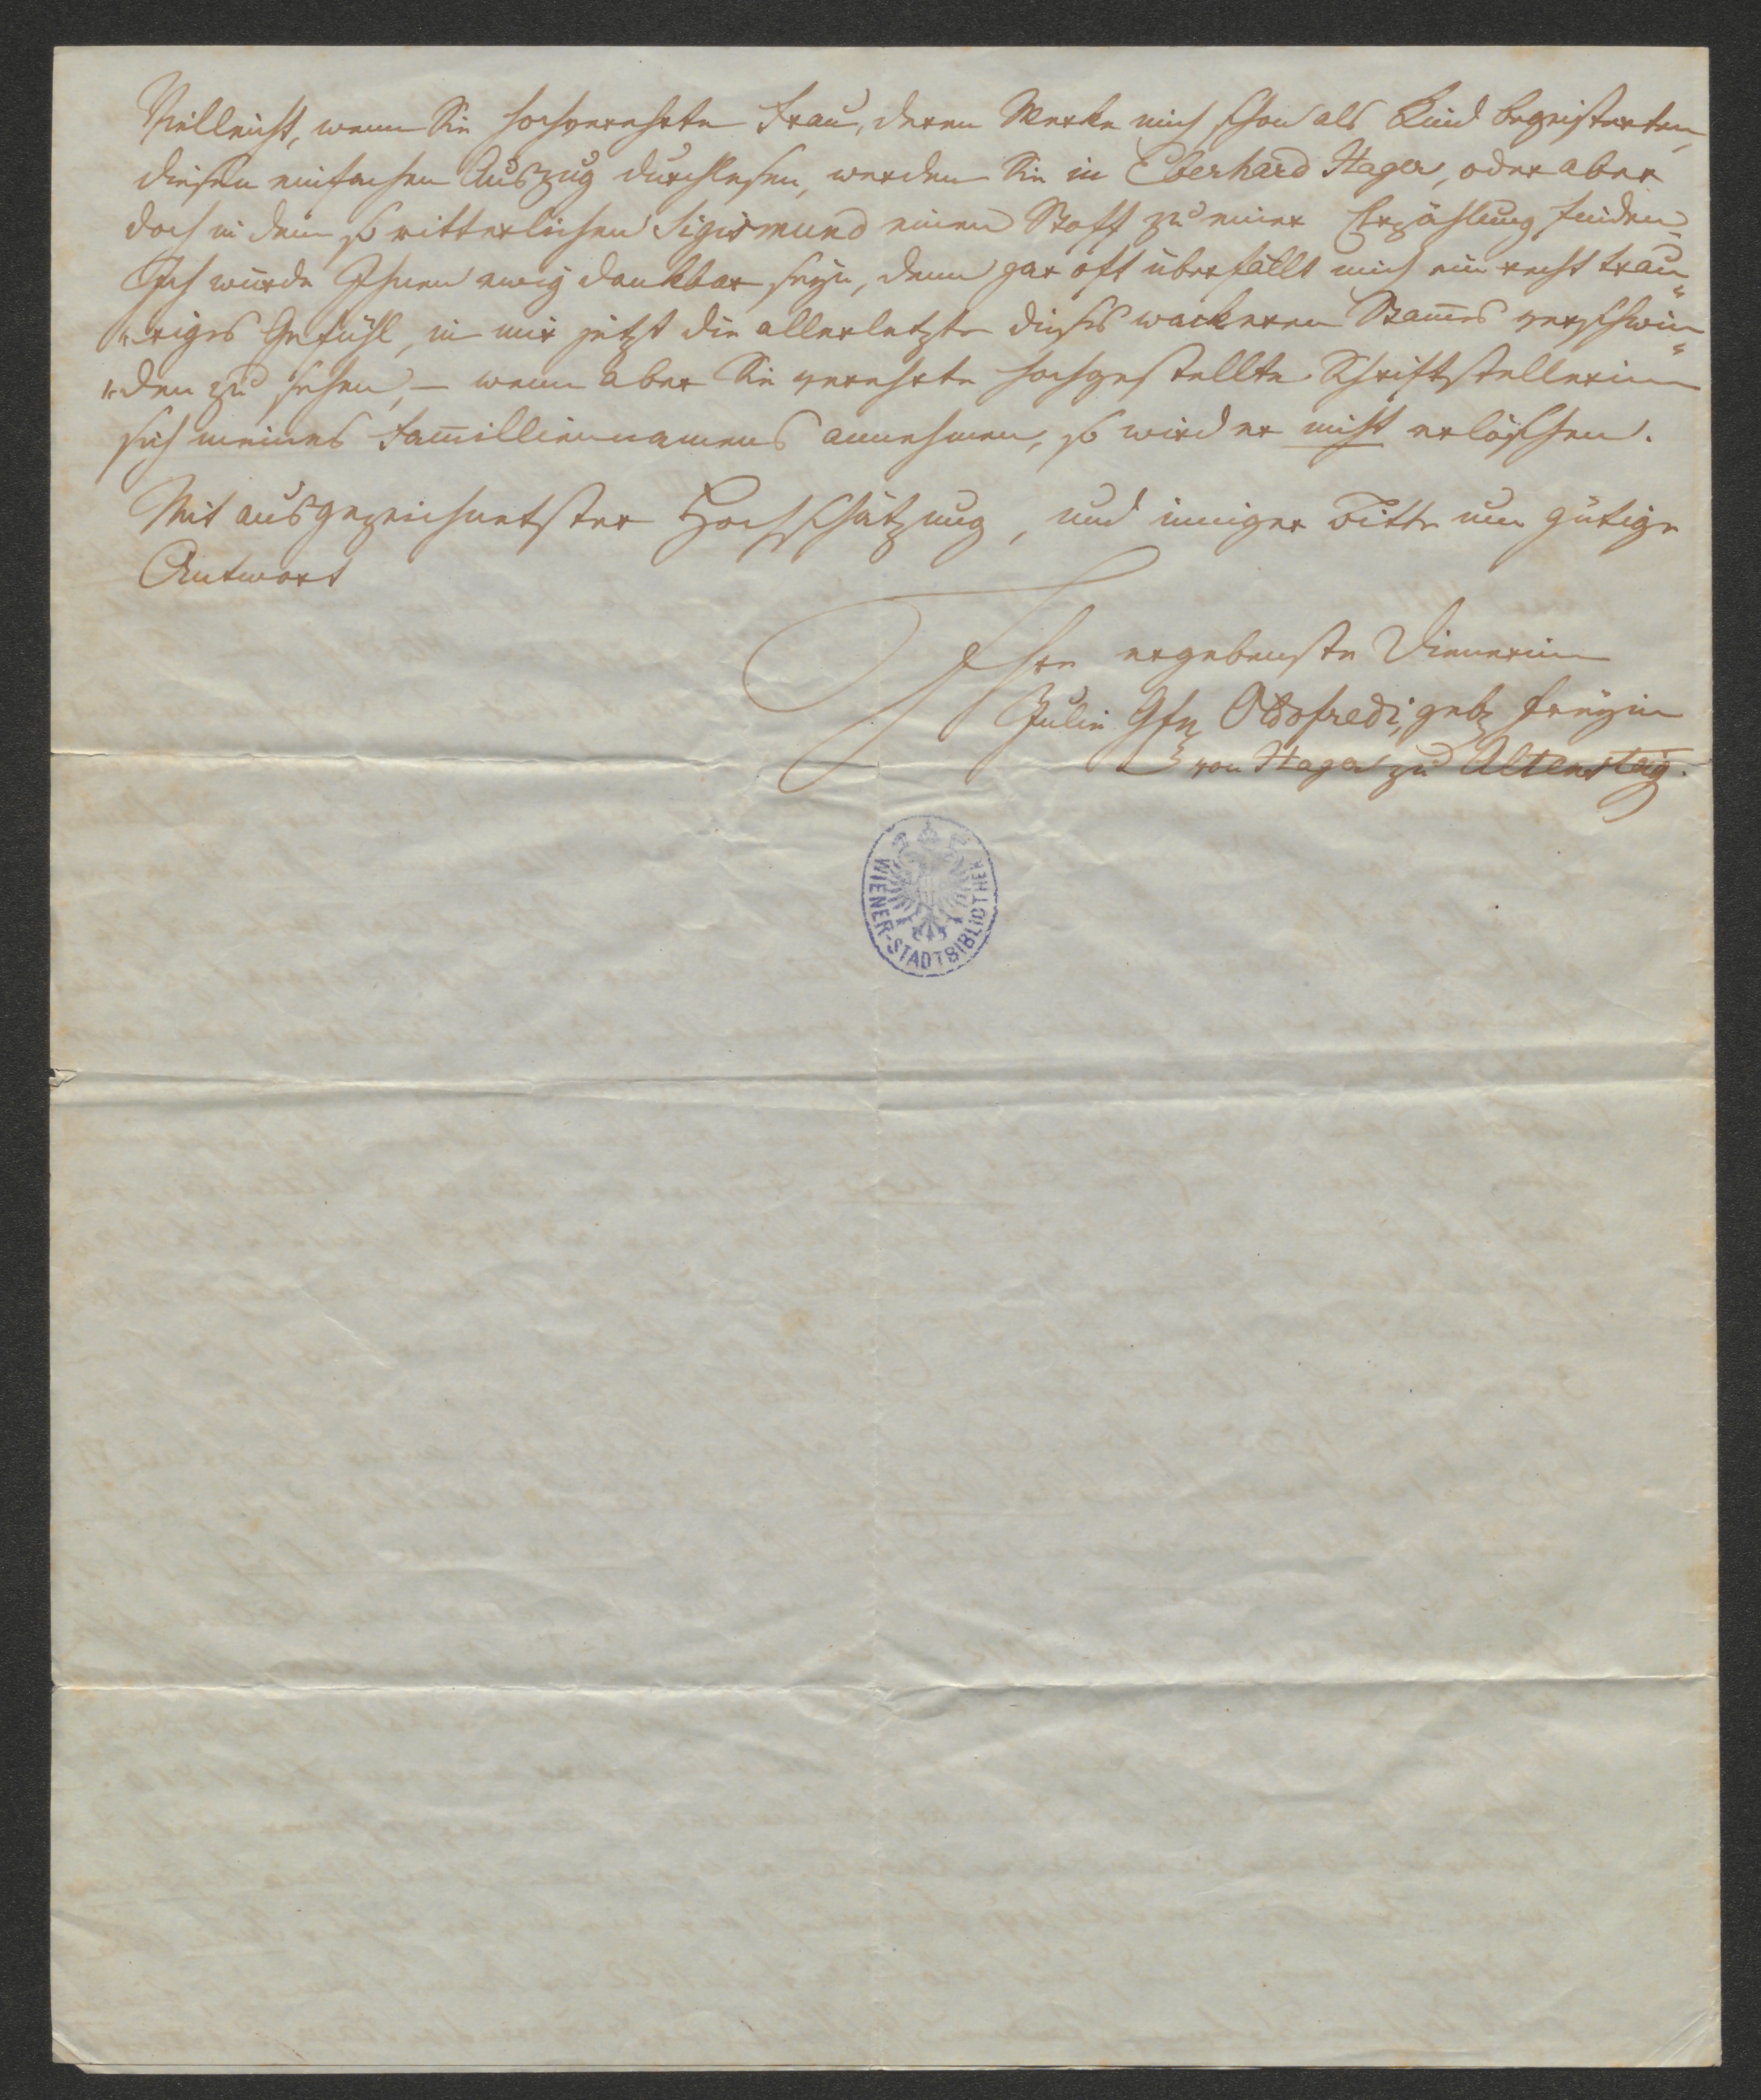 Vielleicht, wenn Sie hochverehrte Frau, deren Werke mich schon als Kind begeisterten,
diesen einfachen Auszug durchlesen, werden Sie in Eberhard Hager, oder aber
doch in dem so ritterlichen Sigismund einen Stoff zu einer Erzählung finden.
Ich würde Ihnen ewig dankbar seyn, denn gar oft überfällt mich ein recht trau„
„riges Gefühl, in mir jetzt die allerletzte dieses wackeren Stam̄es verschwin„
„den zu sehen, – wenn aber Sie verehrte hochgestellte Schriftstellerinn
sich meines Fam̄illiennamens annehmen, so wird er nicht erlöschen.
Mit ausgezeichnetster Hochschätzung, und inniger Bitte um gütige
Antwort
Ihre ergebenste Dienerinn
Julie Gfn Ottofredi, geb. Freyin
von Hager zu Altensteig.
WIENER-STADTBIBLIOTHEK